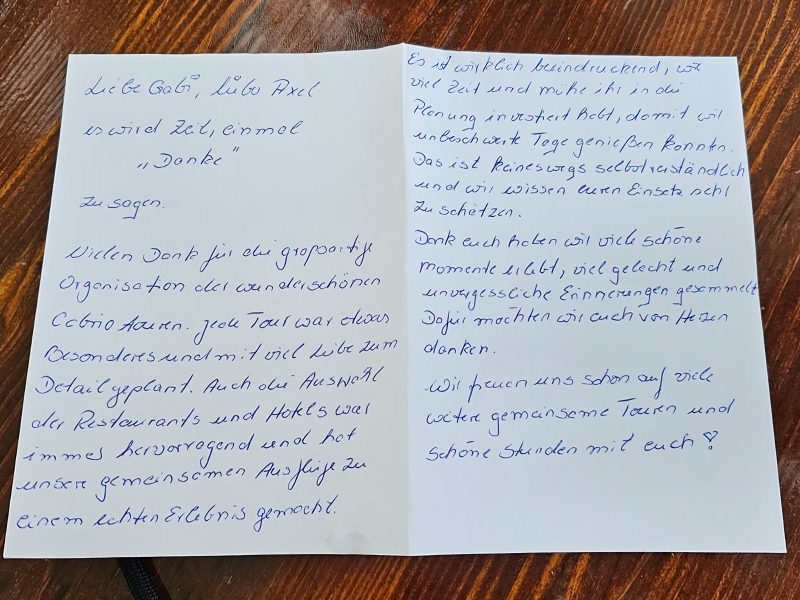 Liebe Gabi, liebe Axel
es wird Zeit, einmal
„Danke"
zu sagen.
Vielen Dank für die großartige
Organisation der wunderschönen
Cabrio Touren. Jede Tour war etwas
Besonderes und mit viel Liebe zum
Detail geplant. Auch die Auswahl
der Restaurants und Hotels war
immer hervorragend und hat
unsere gemeinsamen Ausflüge zu
einem echten Erlebnis gemacht.
Es ist wirklich beeindruckend, wie
viel Zeit und mühe ihr in die
Planung investiert habt, damit wir
unbeschwerte Tage genießen konnten.
Das ist keineswegs selbstverständlich
und wir wissen euren Einsatz sehr
zu schätzen.
Dank euch haben wir viele schöne
momente erlebt, viel gelacht und
unvergessliche Erinnerungen gesammelt
Dafür möchten wir euch von Herzen
danken.
Wir freuen uns schon auf viele
weitere gemeinsame Touren und
schöne Stunden mit euch